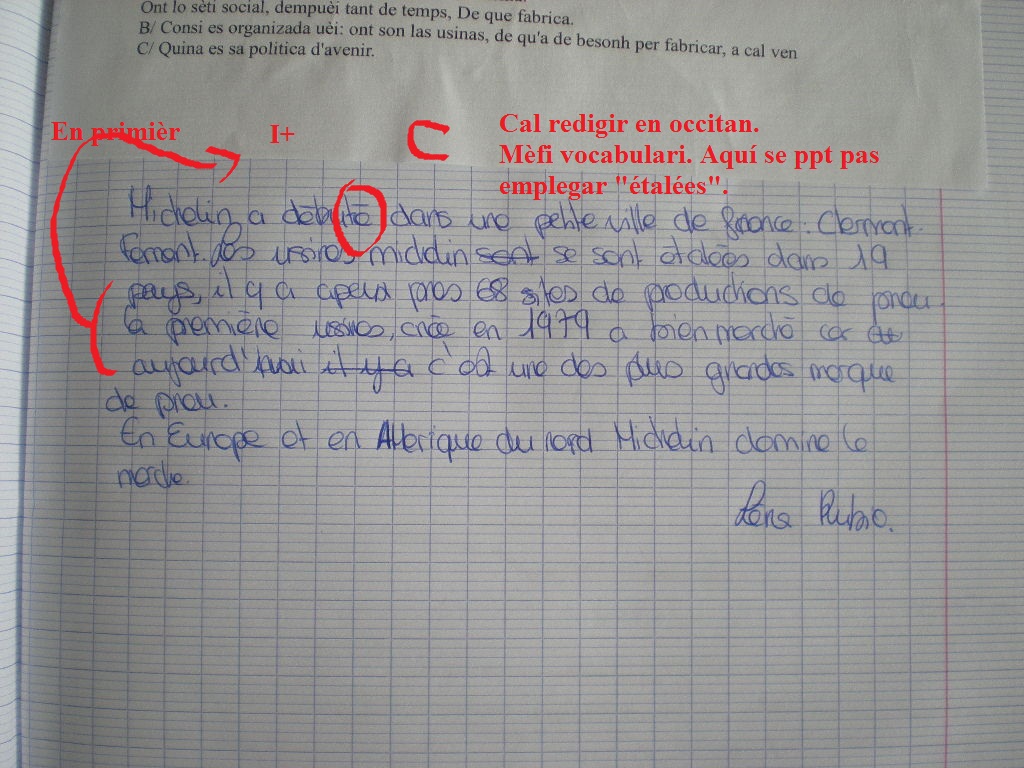 Ont lo sèti social, dempuèi tant de temps, De que fabrica.
B/ Consi es organizada uèi: ont son las usinas, de qu'a de besonh per fabricar, a cal ven
C/ Quina es sa politica d'avenir.
En primièr
I+
C
Cal redigir en occitan.
Mèfi vocabulari. Aquí se ppt pas
emplegar "étalées".
Michelin a débuté dans une petite ville de france : Clermont
ferrant. Les usines michelin sont se sont étalées dans 19
pays, il y a apeux pres 68 sites de productions de
la première usines, créé en 1979 a bien marché car
aujourd'hui il y a c'est une des plus grandes marque
de pneu.
En Europe et en Amerique du nord Michelin domine le
marche.
Léna Rubio.